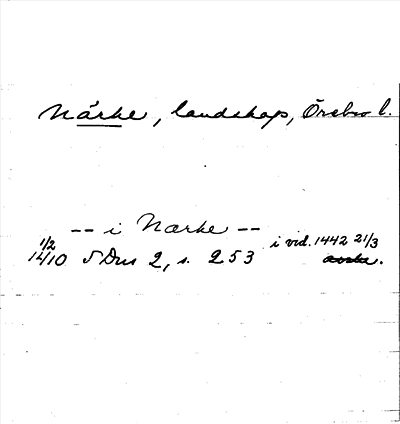 Närke, landskap, Örebro l.
-- i Närke --
1/2 1410 SDns 2, s. 253 i vid. 1442 21/3